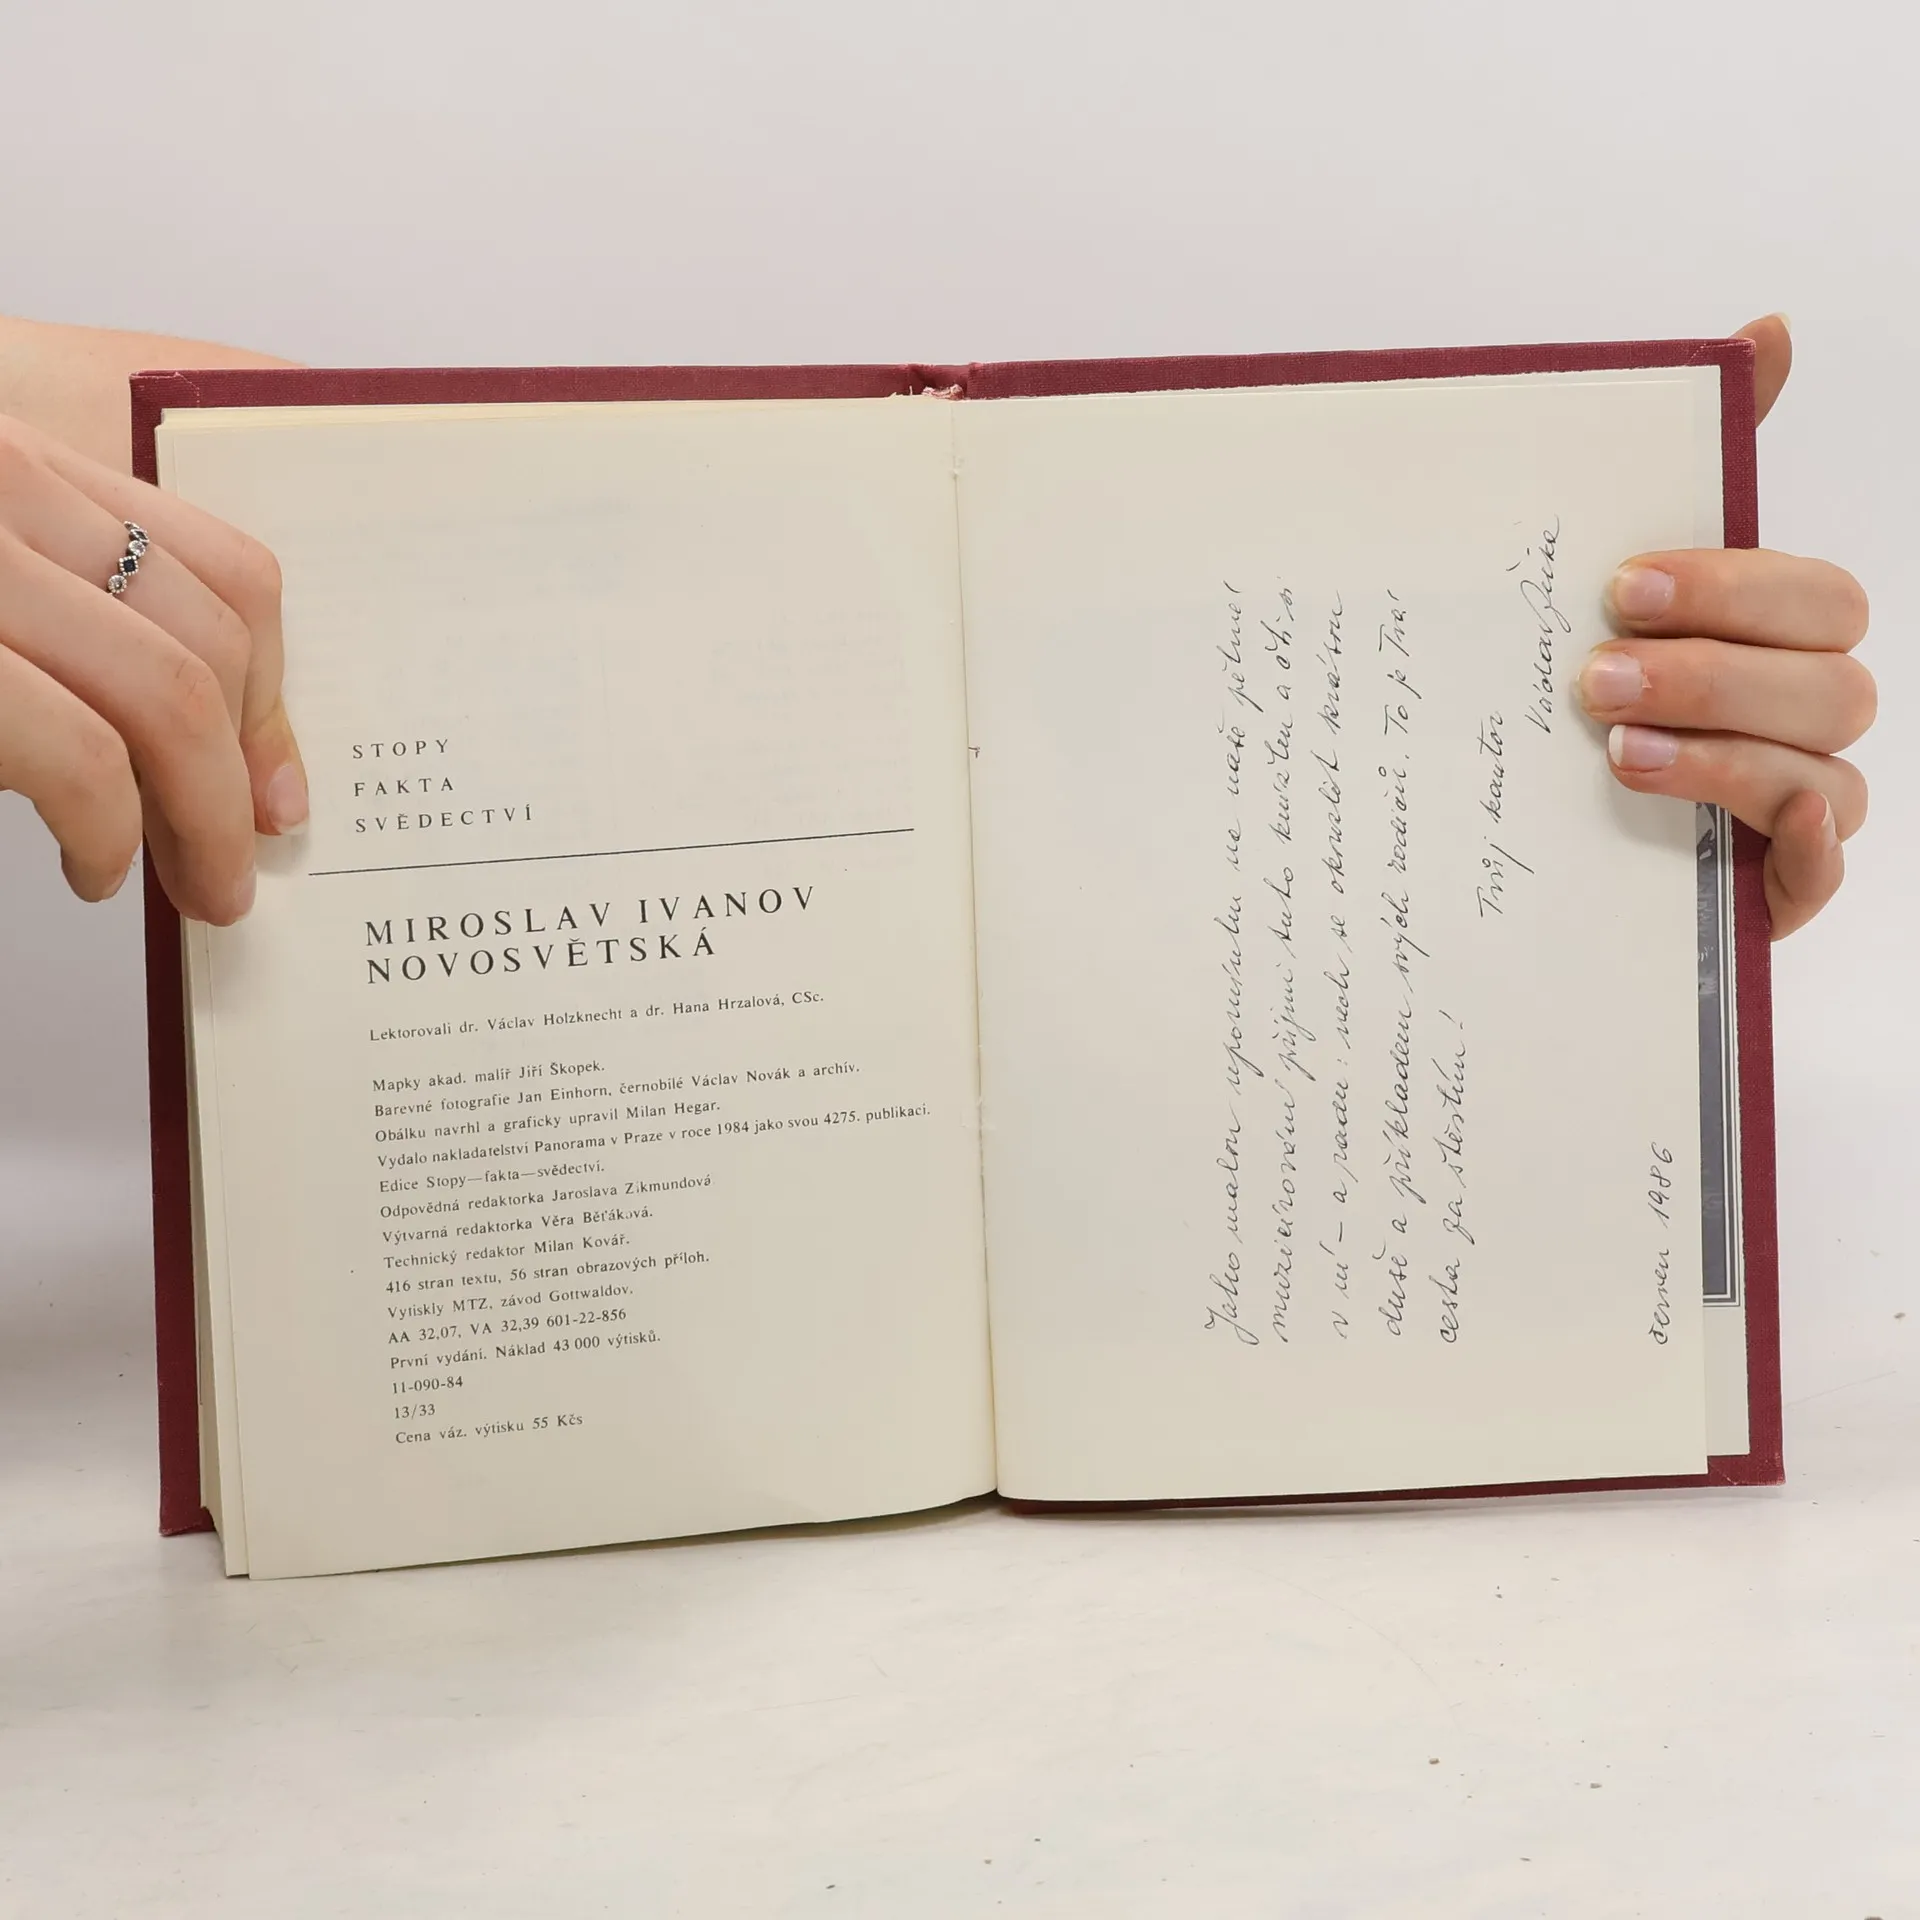 STOPY
FAKTA
SVĚDECTVÍ
MIROSLAV IVANOV
NOVOSVĚTSKÁ
Lektorovali dr. Václav Holzknecht a dr. Hana Hrzalová, CSc.
Mapky akad. malíř Jiří Škopek.
Barevné fotografie Jan Einhorn, černobílé Václav Novák a archív.
Obálku navrhl a graficky upravil Milan Hegar.
Vydalo nakladatelství Panorama v Praze v roce 1984 jako svou 4275. publikaci.
Edice Stopy—fakta—svědectví.
Odpovědná redaktorka Jaroslava Zikmundová
Výtvarná redaktorka Věra Běťáková.
Technický redaktor Milan Kovář.
416 stran textu, 56 stran obrazových příloh.
Vytiskly MTZ, závod Gottwaldov.
AA 32,07, VA 32,39 601-22-856
První vydání. Náklad 43 000 výtisků.
11-090-84
13/33
Cena váz. výtisku 55 Kčs
Jako malou upomínku na naše pětileté
muzicírování přijmi tuto knížku a čti si
v ní – a radu: nech se okouzlit krásou
duše a příkladem svých rodičů. To je Tvá
cesta za štěstím!
Tvůj kantor
Václav
červen 1986